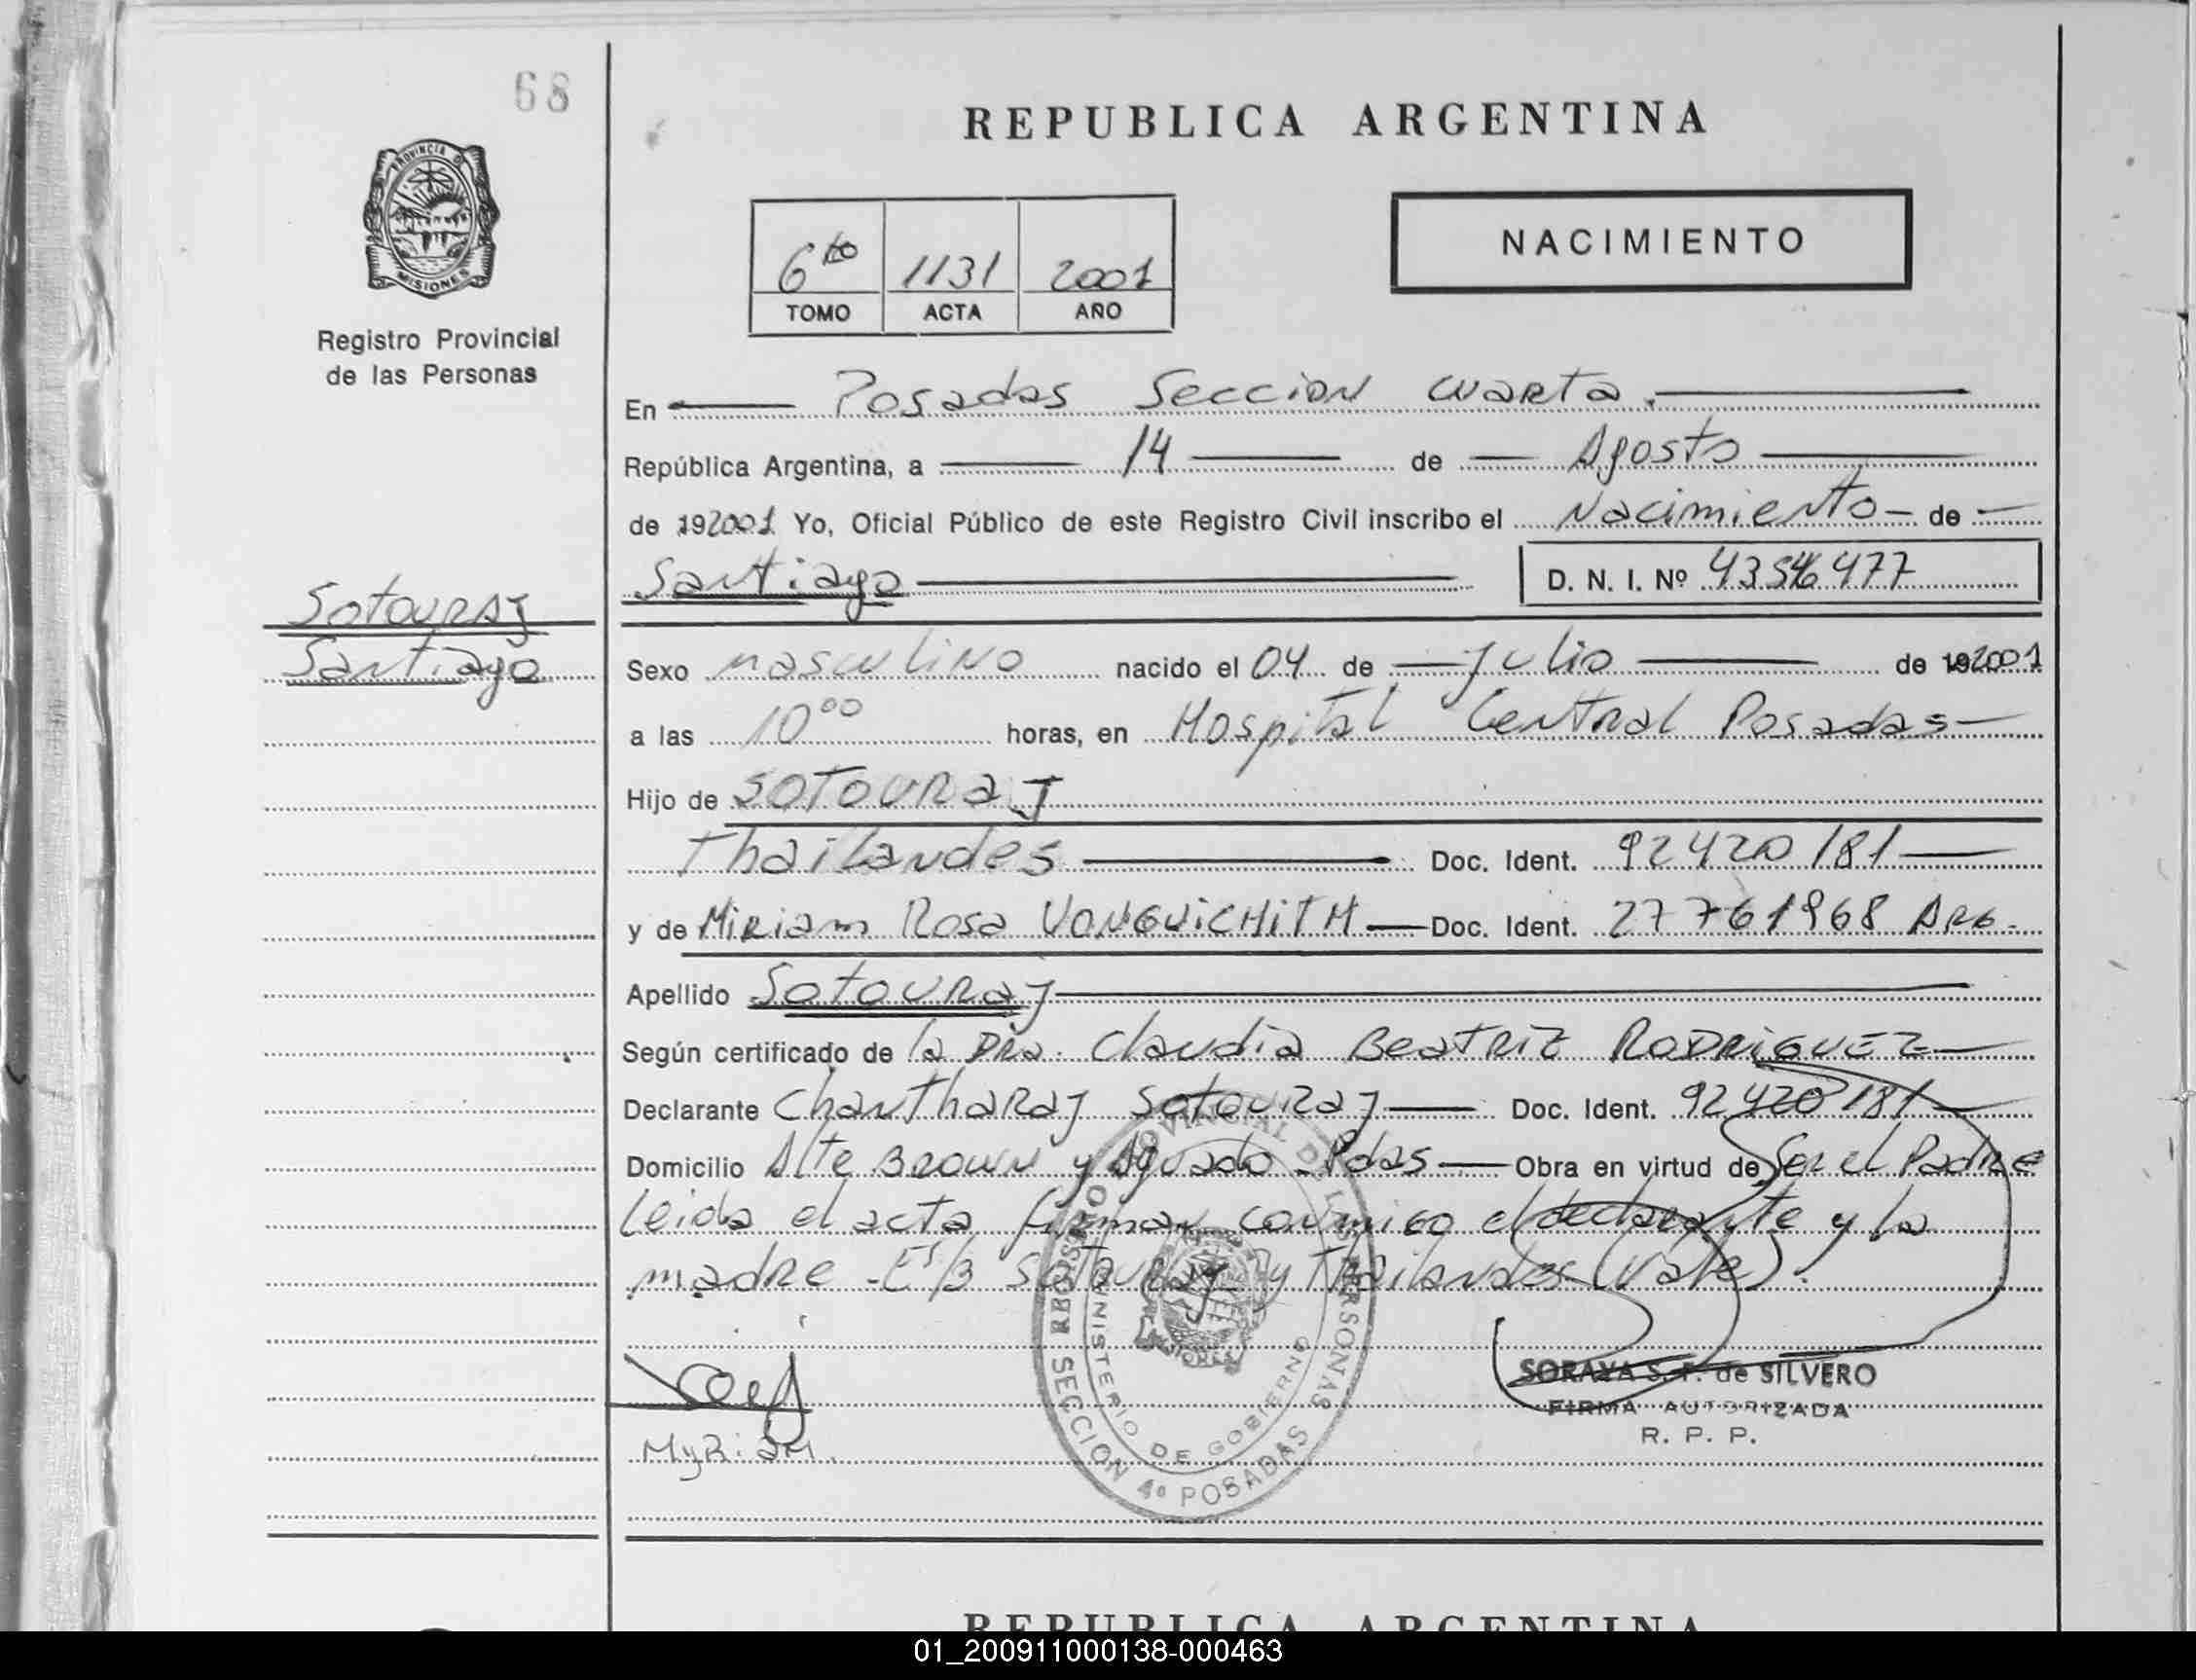 68
REPUBLICA ARGENTINA
PROVINCIA DE
MISIONES
Registro Provincial
de las Personas
6to 1131 2001
TOMO ACTA AÑO
NACIMIENTO
En Posadas Seccion cuarta.
República Argentina, a 14 de Agosto
de 192001 Yo, Oficial Público de este Registro Civil inscribo el Nacimiento de
Santiago D. N. I. Nº
Sotouraj
Santiago
Sexo masculino nacido el 04 de Julio de 192001
a las 10 00 horas, en Hospital Central Posadas
Hijo de SOTOURAJ
Thailandes Doc. Ident. 92420181
y de Miriam Rosa VONGUICHITH Doc. Ident. 27761968 ARG.
Apellido Sotouraj
Según certificado de la Dra. Claudia Beatriz RODRIGUEZ
Declarante Chantharaj Sotouraj Doc. Ident. 92420181
Domicilio Alte Brown y Aguado Pdas Obra en virtud de Ser el Padre
Leida el acta firman conmigo el declarante y la
madre - Es/B Sotouraj y Thailandes (Vale).
Myriam
REGISTRO PROVINCIAL DE LAS PERSONAS
MINISTERIO DE GOBIERNO
SECCION 4ª POSADAS
SORAYA S. F. de SILVERO
FIRMA AUTORIZADA
R. P. P.
REPUBLICA ARGENTINA
01_200911000138-000463